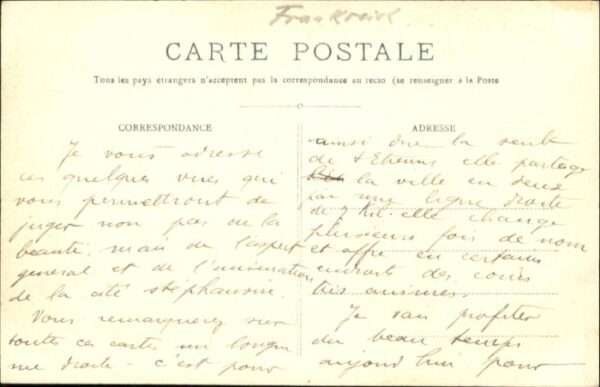 Frankreich
CARTE POSTALE
Tous les pays étrangers n'acceptent pas la correspondance au recto (se renseigner à la Poste
CORRESPONDANCE
Je vous adresse
ces quelques vues qui
vous permettront de
juger non pas de la
beauté, mais de l'aspect
général et de l'animation
de la cité stéphanoise.
Vous remarquerez sur
toutes ces cartes une longue
rue droite - c'est pour
ADRESSE
ainsi dire la seule
de St Etienne elle partage
la ville en deux
par une ligne droite
de 7 kil. elle change
plusieurs fois de nom
et offre en certains
endroits des coins
très animés.
Je vais profiter
du beau temps
aujourd'hui pour